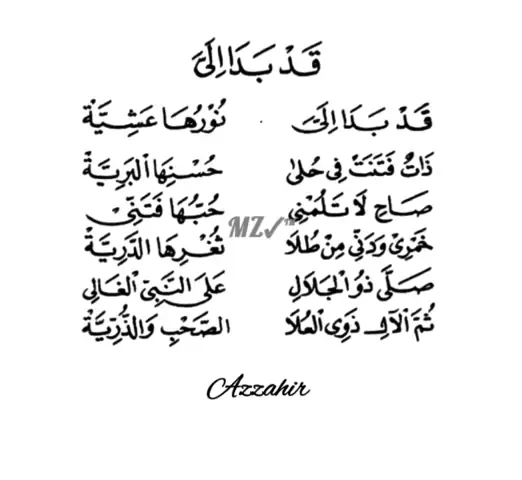 قَدْ بَدَا إِلَيَّ
قَدْ بَدَا إِلَيَّ نُوْرُهَا عَشِيَّةْ
ذَاتُ فَتَنَتْ فِي حُلَىٰ حُسْنِهَا الْبَرِيَّةْ
صَاحِ لَا تَلُمْنِي حُبُّهَا فَتَنِّي
خَمْرِي وَدَنِّي مِنْ طُلَا ثُغْرِهَا الدَّرِيَّةْ
صَلَّى ذُو الْجَلَالِ عَلَى النَّبِيِّ الْغَالِي
ثُمَّ الْآلِ ذَوِي الْعُلَا الصَّحْبِ وَالذُّرِّيَّةْ
MZ✓™
Azzahir